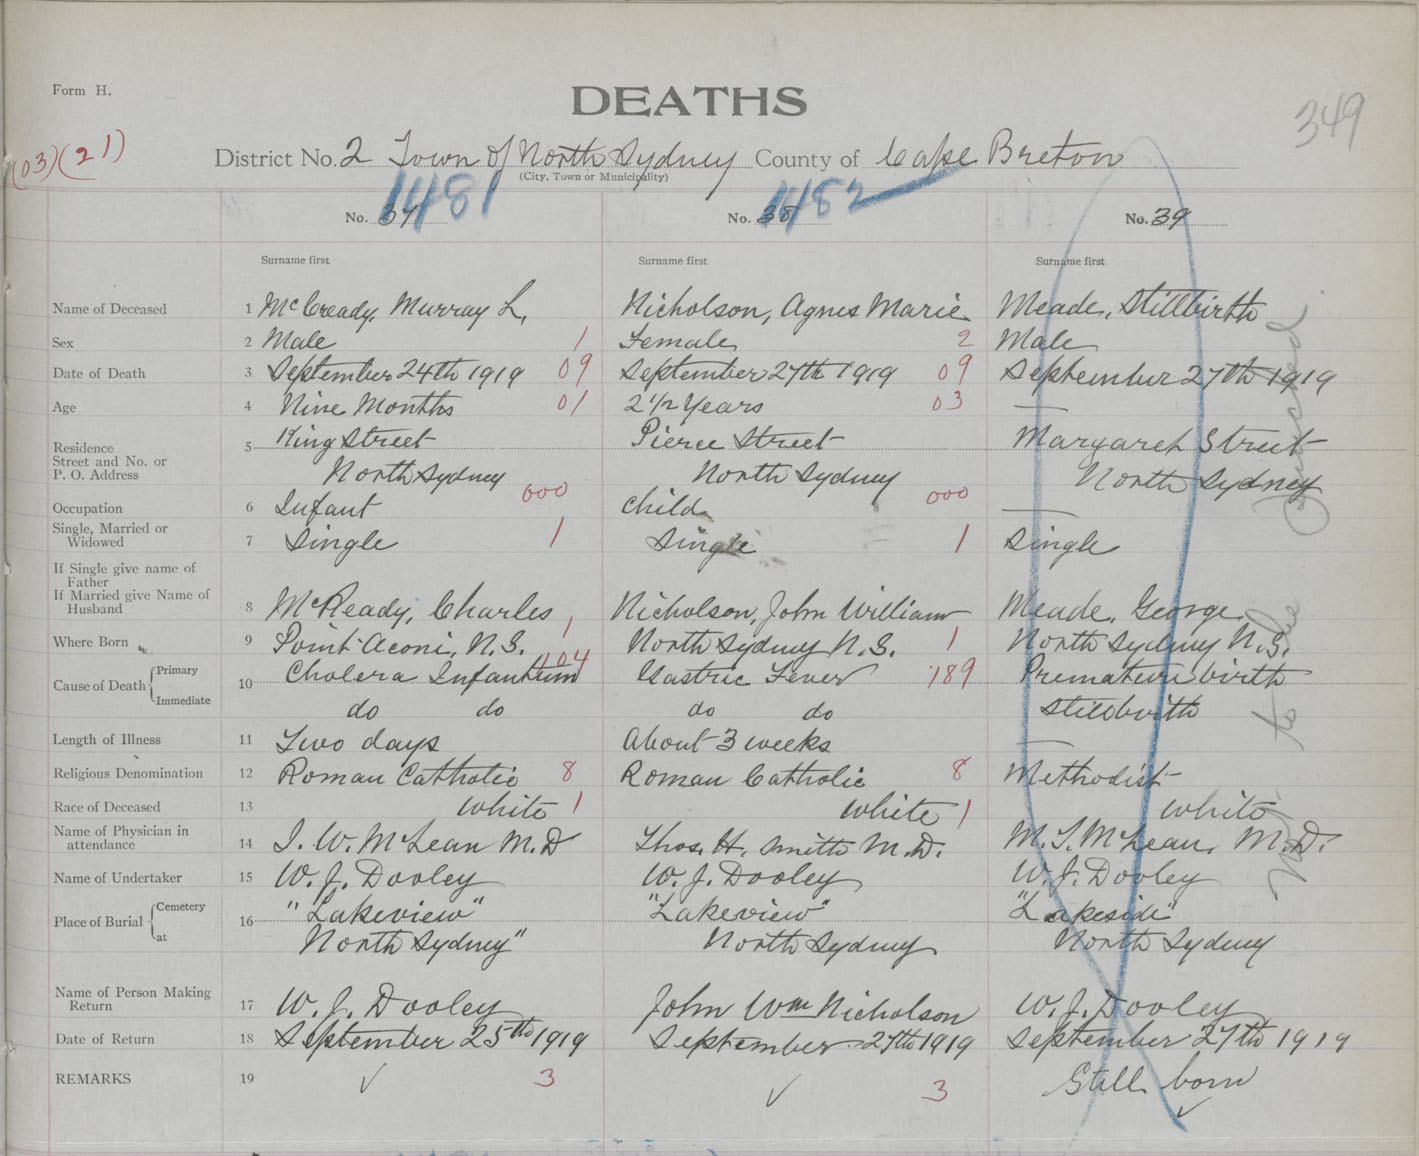 Form H.
DEATHS
349
(03)(21)
District No. 2 Town of North Sydney County of Cape Breton
(City, Town or Municipality)
1481 1482
No. 37 No. 38 No. 39
Surname first Surname first Surname first
Name of Deceased 1 McCready, Murray L. Nicholson, Agnes Marie Meade, Stillbirth
Sex 2 Male 1 Female 2 Male
Date of Death 3 September 24th 1919 09 September 27th 1919 09 September 27th 1919
Age 4 Nine Months 01 2 1/2 Years 03 —
Residence 5 King Street Pierce Street Margaret Street
Street and No. or
P. O. Address North Sydney North Sydney North Sydney
Occupation 6 Infant 000 child 000 —
Single, Married or
Widowed 7 Single 1 Single 1 Single
If Single give name of
Father
If Married give Name of
Husband 8 McReady, Charles Nicholson, John William Meade, George
Where Born 9 Point Aconi, N.S. 1 North Sydney N.S. 1 North Sydney N.S.
Cause of Death Primary 10 Cholera Infantum 104 Gastric Fever 189 Premature birth
Immediate do do do do stillbirth
Length of Illness 11 Two days About 3 weeks —
Religious Denomination 12 Roman Catholic 8 Roman Catholic 8 Methodist
Race of Deceased 13 white 1 white 1 white
Name of Physician in
attendance 14 J. W. McLean M.D Thos. H. Smith M.D. M. T. McLean, M.D.
Name of Undertaker 15 W. J. Dooley W. J. Dooley W. J. Dooley
Place of Burial Cemetery 16 "Lakeview" "Lakeview" "Lakeside"
at North Sydney" North Sydney North Sydney
Name of Person Making
Return 17 W. J. Dooley John Wm Nicholson W. J. Dooley
Date of Return 18 September 25th 1919 September 27th 1919 September 27th 1919
REMARKS 19 ✓ 3 ✓ 3 Still born ✓
Not to be Punched.